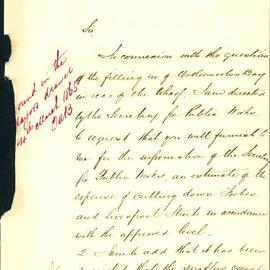 Sir
In connexion with the question
of the filling in of Woolloomooloo Bay
in rear of the Wharf, I am directed
by the Secretary for Public Works
to request that you will furnish to
me for the information of the Secretary
for Public Works, an estimate of the
expense of cutting down Forbes
and Liverpool Streets in accordance
with the approved level.
2 I am to add that it has been
that the
found in the
drawer
March 1865